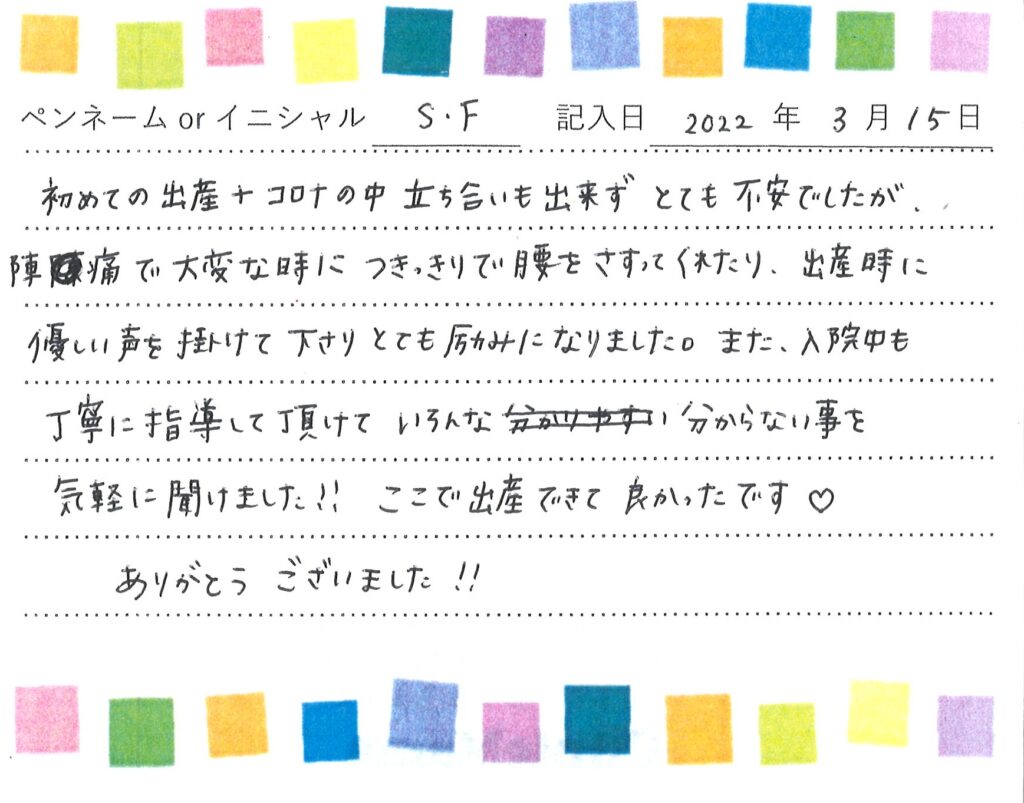 ペンネーム or イニシャル S・F 記入日 2022 年 3 月 15 日
初めての出産+コロナの中 立ち合いも出来ず とても 不安でしたが、
陣痛で大変な時に つきっきりで腰をさすってくれたり、出産時に
優しい声を掛けて下さりとても励みになりました。また、入院中も
丁寧に指導して頂けて いろんな 分かりやすい 分からない事を
気軽に聞けました!! ここで出産できて 良かったです♡
ありがとう ございました!!